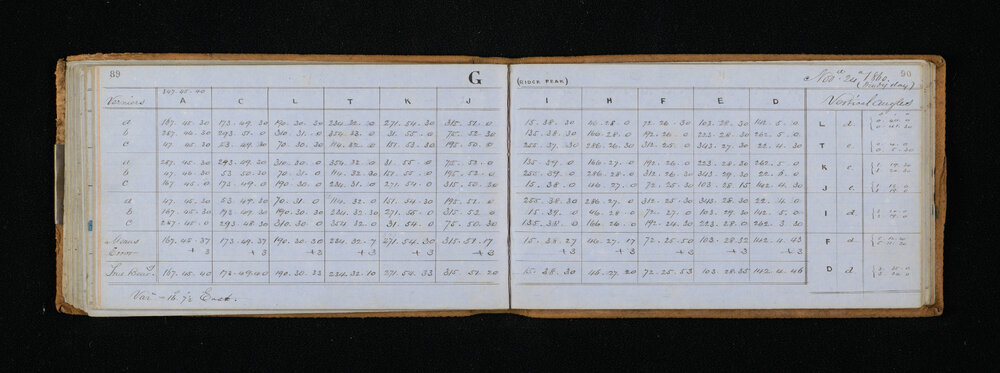 89
G
(RIDER PEAK)
Nov 24th 1860
90
(Windy day)
147. 45. 40
Verniers A C L T K J I H F E D Vertical angles
a 167. 45. 30 173. 49. 30 190. 30. 30 234. 32. 30 271. 54. 30 315. 51. 0 15. 38. 30 46. 28. 0 72. 26. 30 103. 28. 30 142. 5. 0 L d.
b 287. 46. 30 293. 51. 0 310. 31. 0 354. 33. 0 31. 55. 0 75. 52. 30 135. 38. 30 166. 28. 0 192. 26. 0 223. 28. 30 262. 5. 0
c 47. 45. 30 53. 49. 30 70. 30. 30 114. 32. 0 151. 53. 30 195. 50. 0 255. 37. 30 286. 26. 30 312. 25. 0 343. 27. 30 22. 4. 30 T e.
a 287. 45. 30 293. 49. 30 310. 30. 0 354. 32. 0 31. 55. 0 75. 52. 0 135. 39. 0 166. 27. 0 192. 26. 0 223. 28. 30 262. 5. 0 K e.
b 47. 46. 30 53. 50. 30 70. 31. 0 114. 32. 30 151. 55. 0 195. 52. 0 255. 39. 0 286. 28. 0 312. 26. 30 343. 29. 30 22. 6. 0
c 167. 45. 0 173. 49. 0 190. 30. 0 234. 31. 0 271. 54. 0 315. 50. 30 15. 38. 0 46. 27. 0 72. 25. 30 103. 28. 15 142. 4. 30 J e.
a 47. 45. 30 53. 49. 30 70. 31. 0 114. 32. 0 151. 54. 30 195. 51. 0 255. 38. 30 286. 27. 0 312. 25. 30 343. 28. 30 22. 4. 0
b 167. 45. 30 173. 49. 30 190. 30. 30 234. 32. 30 271. 55. 0 315. 52. 0 15. 39. 0 46. 28. 0 72. 27. 0 103. 29. 30 142. 5. 0 I d.
c 287. 45. 0 293. 48. 30 310. 30. 0 354. 32. 0 31. 54. 0 75. 50. 30 135. 38. 0 166. 26. 0 192. 24. 30 223. 28. 0 262. 3. 30
Means 167. 45. 37 173. 49. 37 190. 30. 30 234. 32. 7 271. 54. 30 315. 51. 17 15. 38. 27 46. 27. 17 72. 25. 50 103. 28. 32 142. 4. 43 F d.
Error + 3 + 3 + 3 + 3 + 3 + 3 + 3 + 3 + 3 + 3 + 3
True Bearg 167. 45. 40 173. 49. 40 190. 30. 33 234. 32. 10 271. 54. 33 315. 51. 20 15. 38. 30 46. 27. 20 72. 25. 53 103. 28. 35 142. 4. 46 D d.
East.